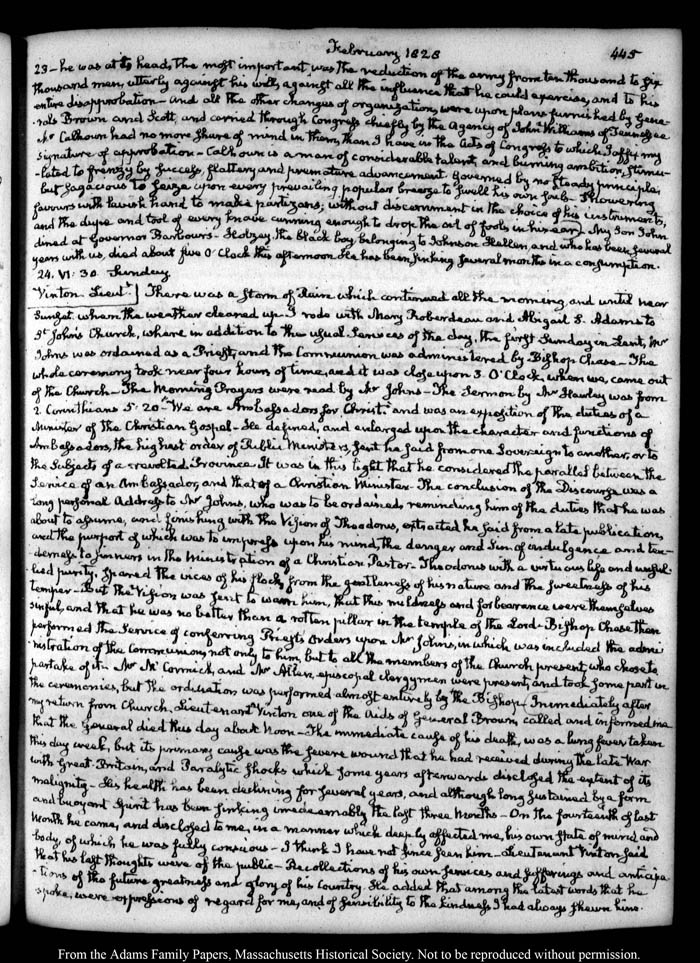 February 1828
445
23 – he was at its head, the most important was the reduction of the army from ten thousand to six
thousand men, utterly against his will, against all the influence that he could exercise, and to his
entire disapprobation – and all the other changes of organization, were upon plans furnished by Gene
rals Brown and Scott, and carried through Congress chiefly by the Agency of John Williams of Tennessee
Mr Calhoun had no more share of mind in them, than I have in the Acts of Congress to which I affix my
signature of approbation – Calhoun is a man of considerable talent, and burning ambition, stimu-
-lated to frenzy by success, flattery and premature advancement. Governed by no steady principle,
but sagacious to seize upon every prevailing popular breeze to swell his own sails – showering
favours with lavish hand to make partizans, without discernment in the choice of his instruments,
and the dupe and tool of every knave cunning enough to drop the oil of fools in his ear – My Son John
dined at Governor Barbour's – Holzey, the black boy belonging to Johnson Hellen, and who has been several
years with us, died about five O'Clock this afternoon. He has been sinking several months in a consumption.
24. VI: 30. Sunday
Vinton. Lieutt] There was a Storm of Rain which continued all the morning, and until near
Sunset when the weather cleared up. I rode with Mary Roberdeau and Abigail S. Adams to
St John's Church, where in addition to the usual services of the day, the first Sunday in Lent, Mr
Johns was ordained as a Priest, and the Communion was administered by Bishop Chase – The
whole ceremony took near four hours of time, and it was close upon 3. O'Clock when we came out
of the Church – The Morning Prayers were read by Mr Johns – The Sermon by Mr Hawley was from
2. Corinthians 5: 20. "We are Ambassadors for Christ" and was an exposition of the duties of a
Minister of the Christian Gospel – He defined, and enlarged upon the character and functions of
Ambassadors, the highest order of Public Ministers, sent he said from one Sovereign to another, or to
the Subjects of a revolted Province. It was in this light that he considered the parallel between the
Service of an Ambassador, and that of a Christian Minister. The conclusion of the Discourse was a
long personal Address to Mr Johns, who was to be ordained, reminding him of the duties that he was
about to assume, and finishing with the Vision of Theodorus, extracted he said from a late publication,
and the purport of which was to impress upon his mind, the danger and Sin of indulgence and ten-
derness to sinners in the Ministration of a Christian Pastor – Theodorus with a virtuous life and unsul-
lied purity, spared the vices of his flock, from the gentleness of his nature and the sweetness of his
temper – But the Vision was sent to warn him, that this mildness and forbearance were themselves
sinful, and that he was no better than a rotten pillar in the temple of the Lord – Bishop Chase then
performed the Service of conferring Priests Orders upon Mr Johns, in which was included the admi
nistration of the Communion, not only to him, but to all the members of the Church present, who chose to
partake of it – Mr McCormick, and Mr Allen, episcopal clergymen were present, and took some part in
the ceremonies, but the ordination was performed almost entirely by the Bishop – Immediately after
my return from Church, Lieutenant Vinton one of the Aids of General Brown, called and informed me
that the General died this day about Noon – The immediate cause of his death, was a lung fever taken
this day week, but its primary cause was the severe wound that he had received during the late War
with Great-Britain, and Paralytic shocks which some years afterwards disclosed the extent of its
malignity – His health has been declining for several years, and although long sustained by a firm
and buoyant Spirit has been sinking irredeemably the last three Months – On the fourteenth of last
Month he came, and disclosed to me, in a manner which deeply affected me, his own state of mind, and
body, of which he was fully conscious – I think I have not since seen him – Lieutenant Vinton said
that his last thoughts were of the public – Recollections of his own services and sufferings and anticipa
-tions of the future greatness and glory of his Country – He added that among the latest words that he
spoke, were expressions of regard for me, and of sensibility to the kindness I had always shewn him.
From the Adams Family Papers, Massachusetts Historical Society. Not to be reproduced without permission.